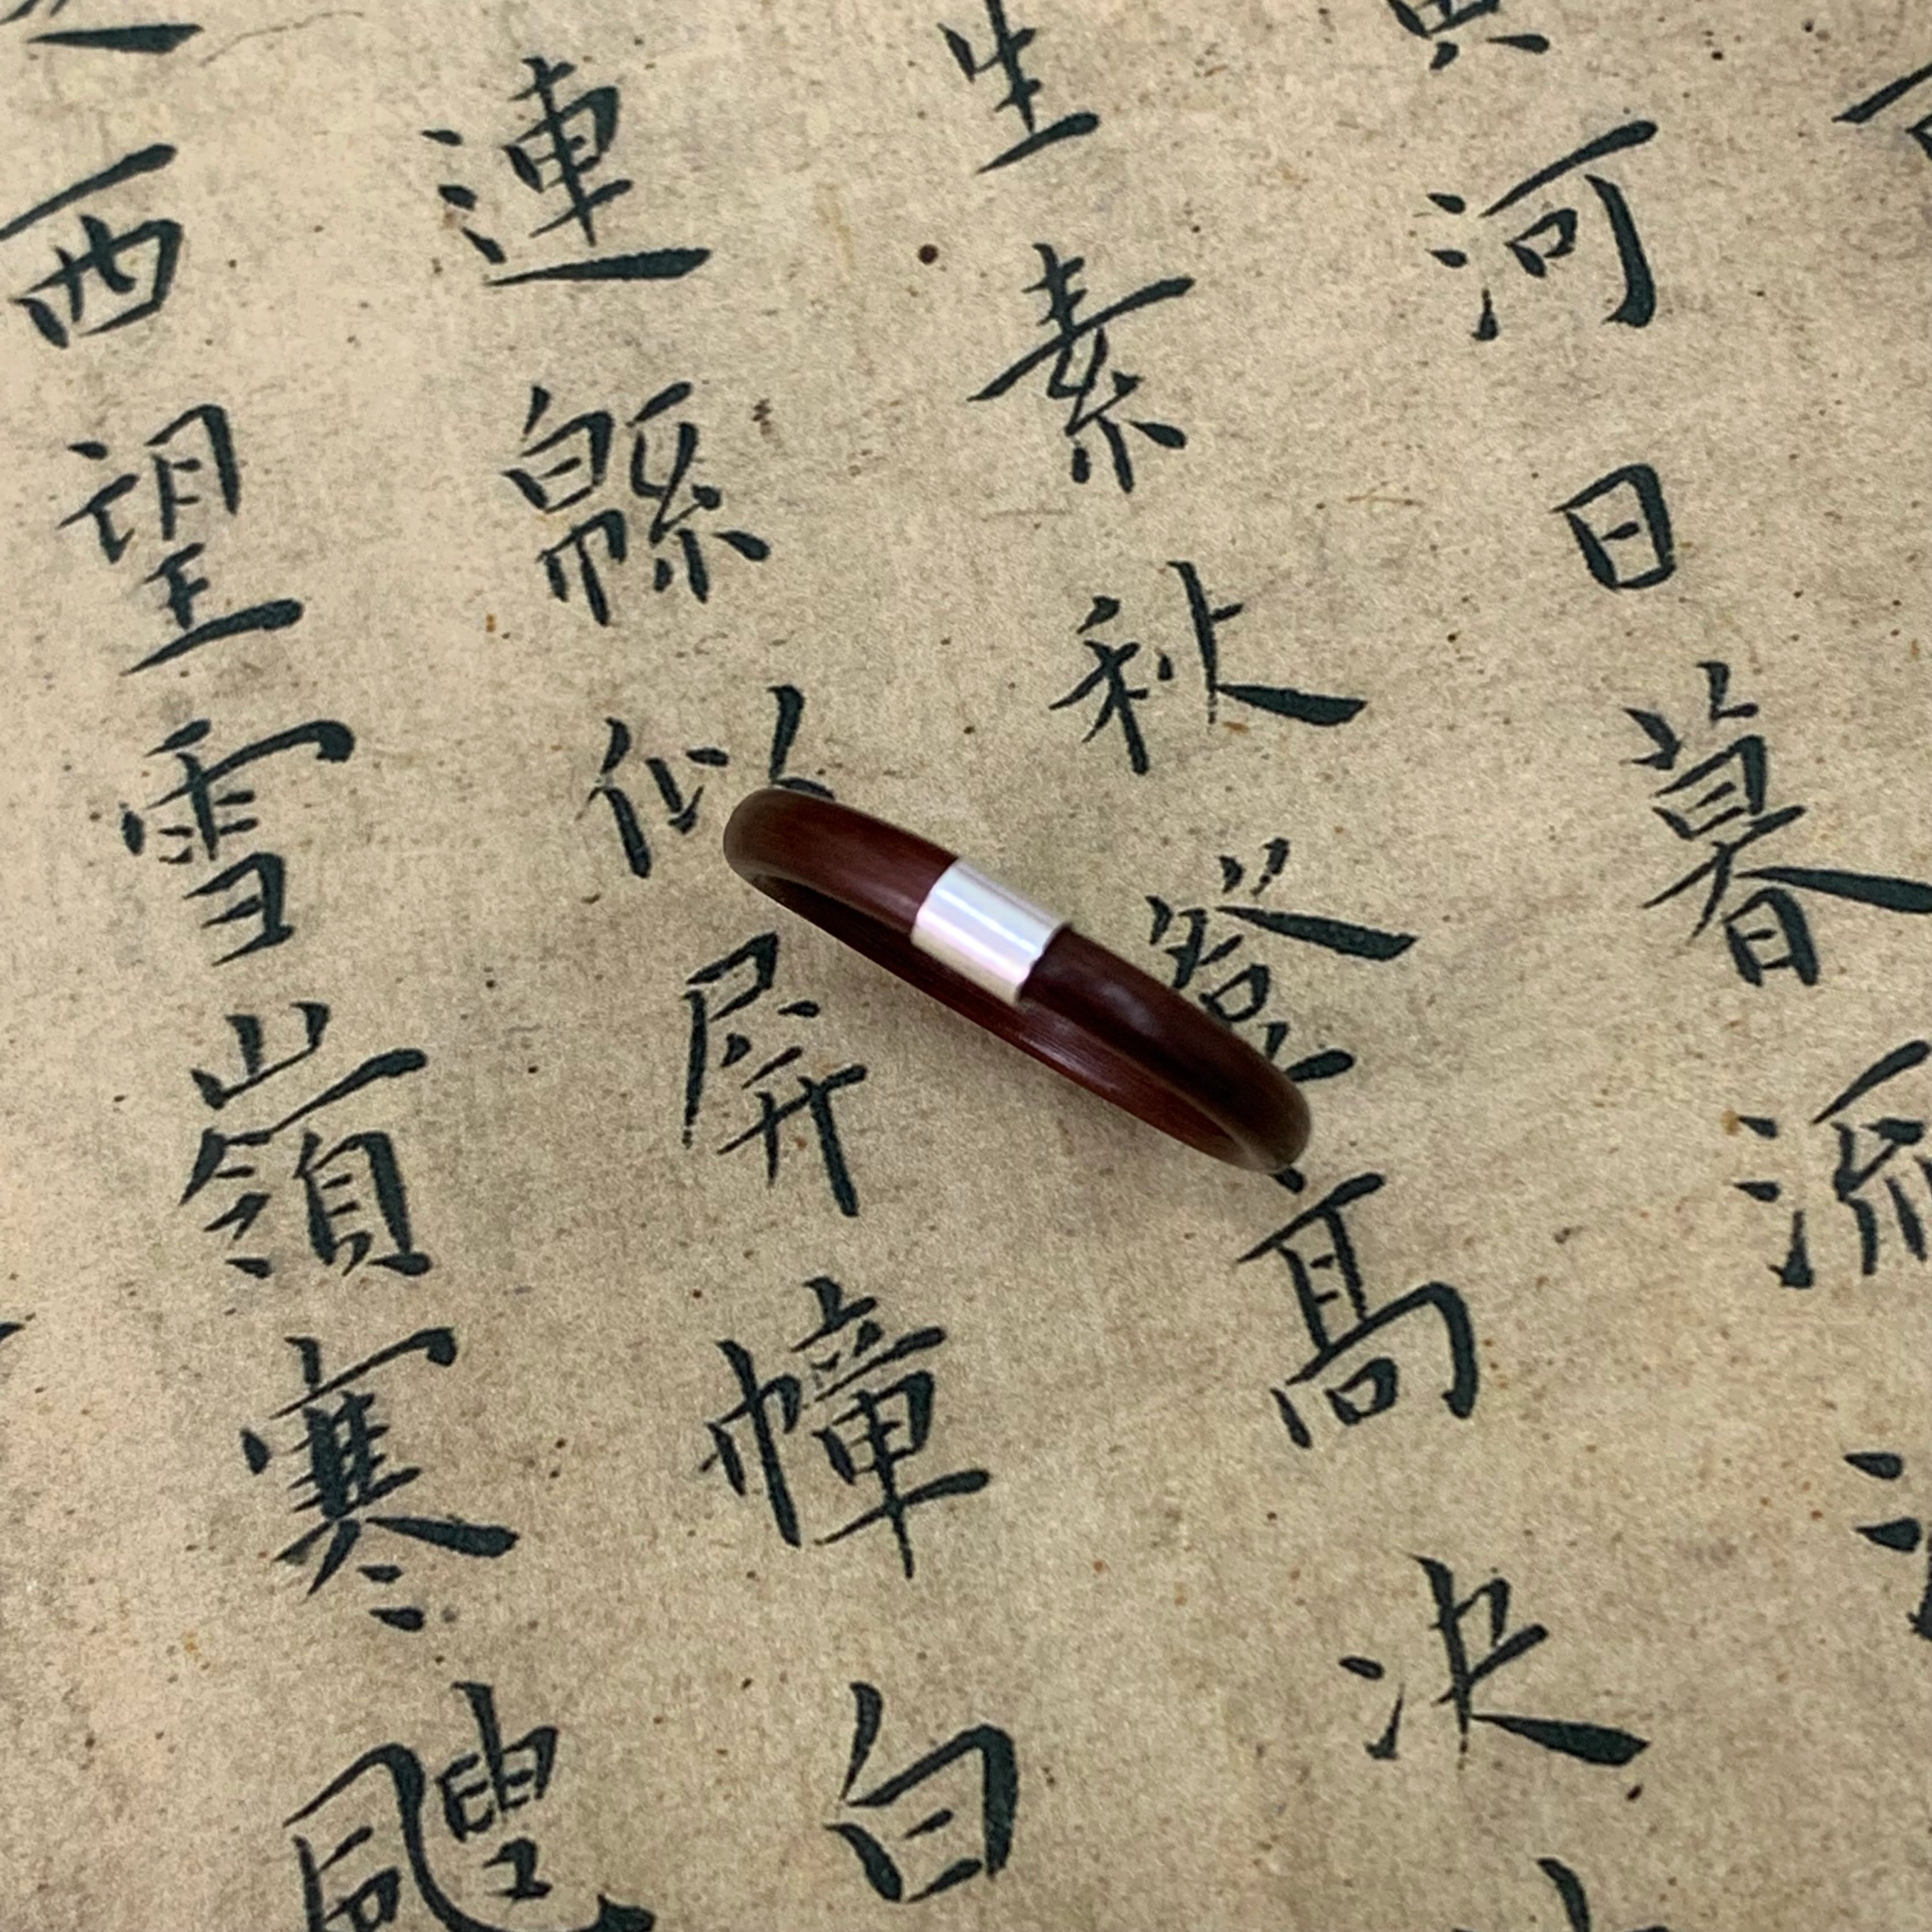 河日暮流
生素秋登高决
連緜似屏幛白
西望雪嶺寒颼